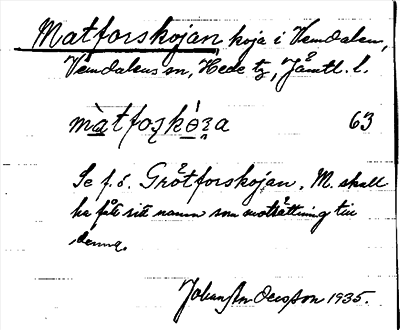 Matforskojan, koja i Vemdalen,
Vemdalens sn, Hede tg, Jämtl. l.
màtfoʂkò̱ʒa 63
Se f. ö. Grötforskojan. M. skall
ha fått sitt namn som motsättning till
denna.
Johan 1935.